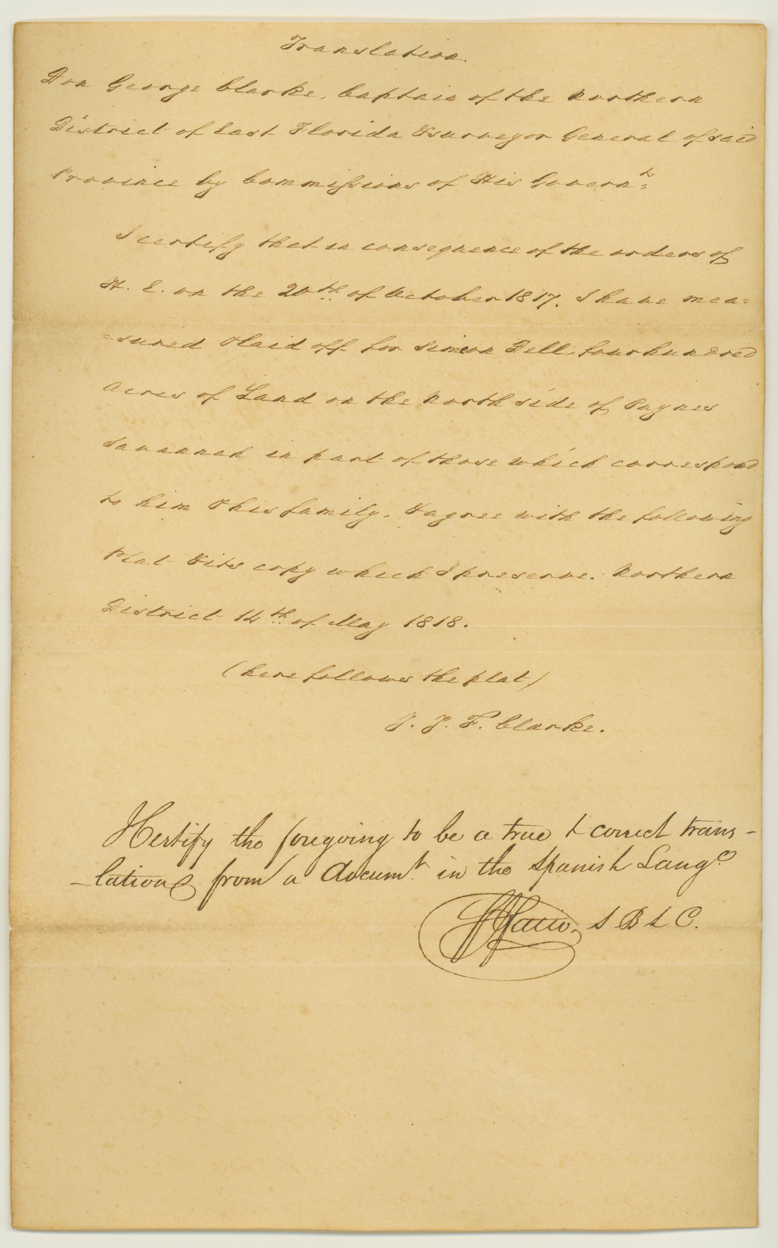 Translation.
Don George Clarke, Captain of the Northern
District of East Florida & surveyor General of said
Province by Commissions of His Governt.
I certify that in consequence of the orders of
H. E. on the 20th of October 1817. I have mea=
=sured & laid off for Simeon Dell four hundred
Acres of Land on the North side of Paynes
Savannah in part of those which correspond
to him & his family. & agree with the following
Plat & its copy which I preserve. Northern
District 14th of May 1818.
(here follows the plat)
J. J. F. Clarke.
I Certify the foregoing to be a true & correct trans-
-lation from a documt. in the Spanish Lange
S B L C.